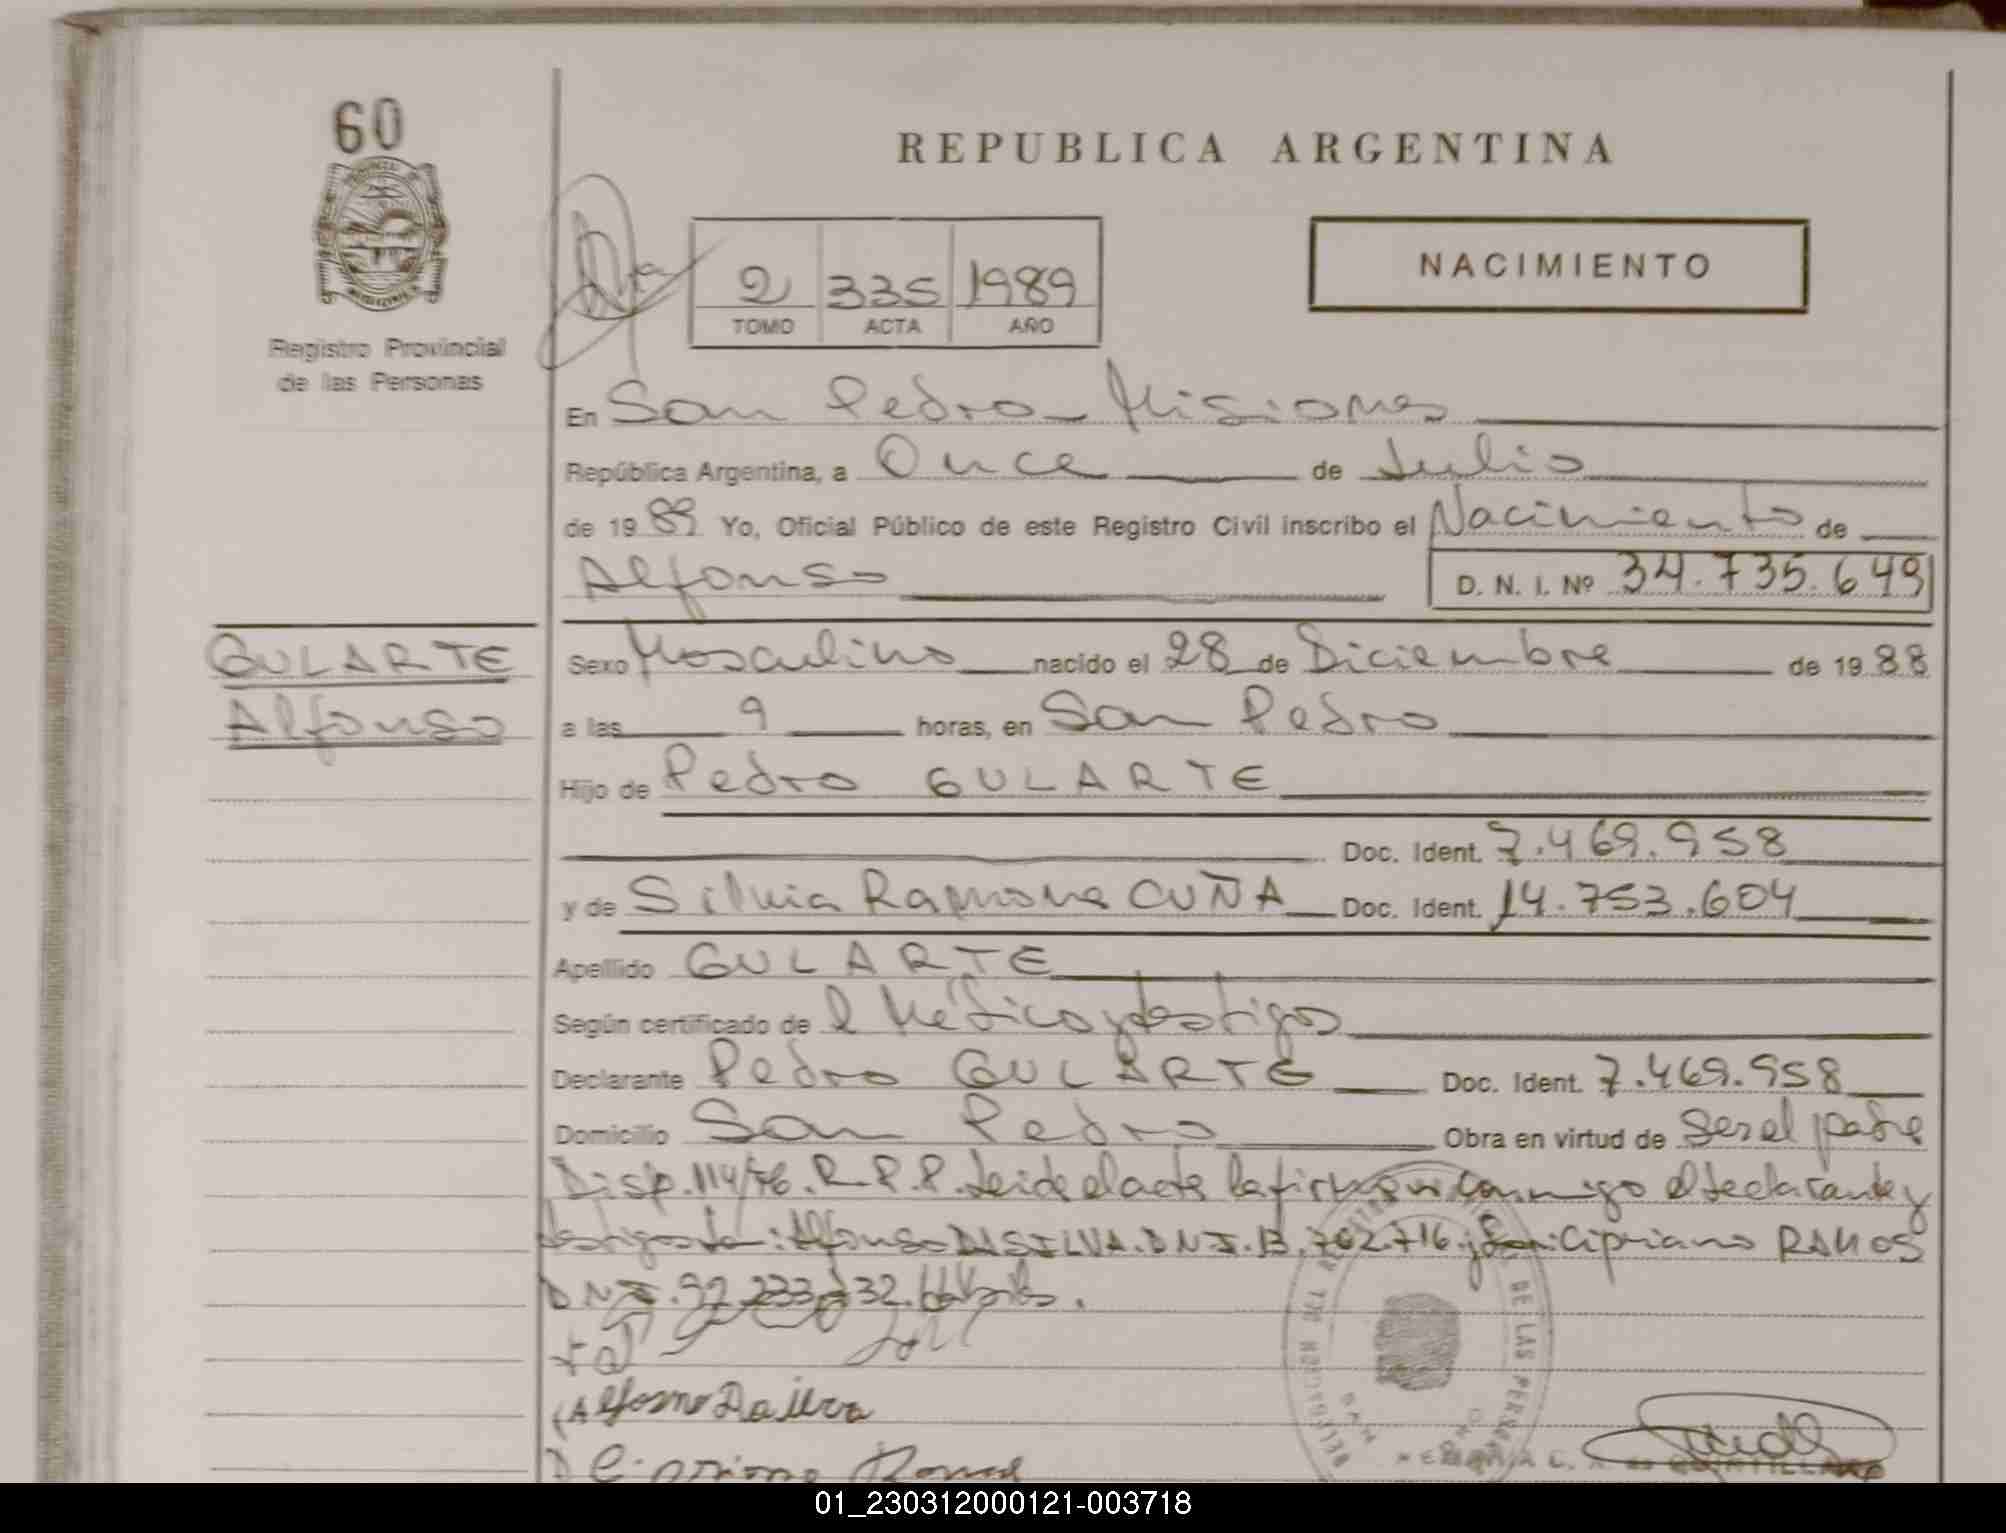 60
REPUBLICA ARGENTINA
NACIMIENTO
2 335 1989
TOMO ACTA AÑO
Registro Provincial
de las Personas
En San Pedro - Misiones
República Argentina, a Once de Julio
de 1989 Yo, Oficial Público de este Registro Civil inscribo el Nacimiento de
Alfonso D. N. I. Nº 34.735.649
GULARTE
Alfonso
Sexo Masculino nacido el 28 de Diciembre de 1988
a las 9 horas, en San Pedro
Hijo de Pedro GULARTE
Doc. Ident. 7.469.958
y de Silvia Ramona CUÑA Doc. Ident. 14.753.604
Apellido GULARTE
Según certificado de el Médico y testigos
Declarante Pedro GULARTE Doc. Ident. 7.469.958
Domicilio San Pedro Obra en virtud de ser el padre
Disp. 114/76. R.P.P. Leida el acta la firman conmigo el declarante y
testigos: Alfonso DA SILVA. D.N.I. 13.702.716 y Cipriano RAMOS
D N I.
Alfonso Da silva
Cipriano Ramos
DE LAS PERSONAS
01_230312000121-003718